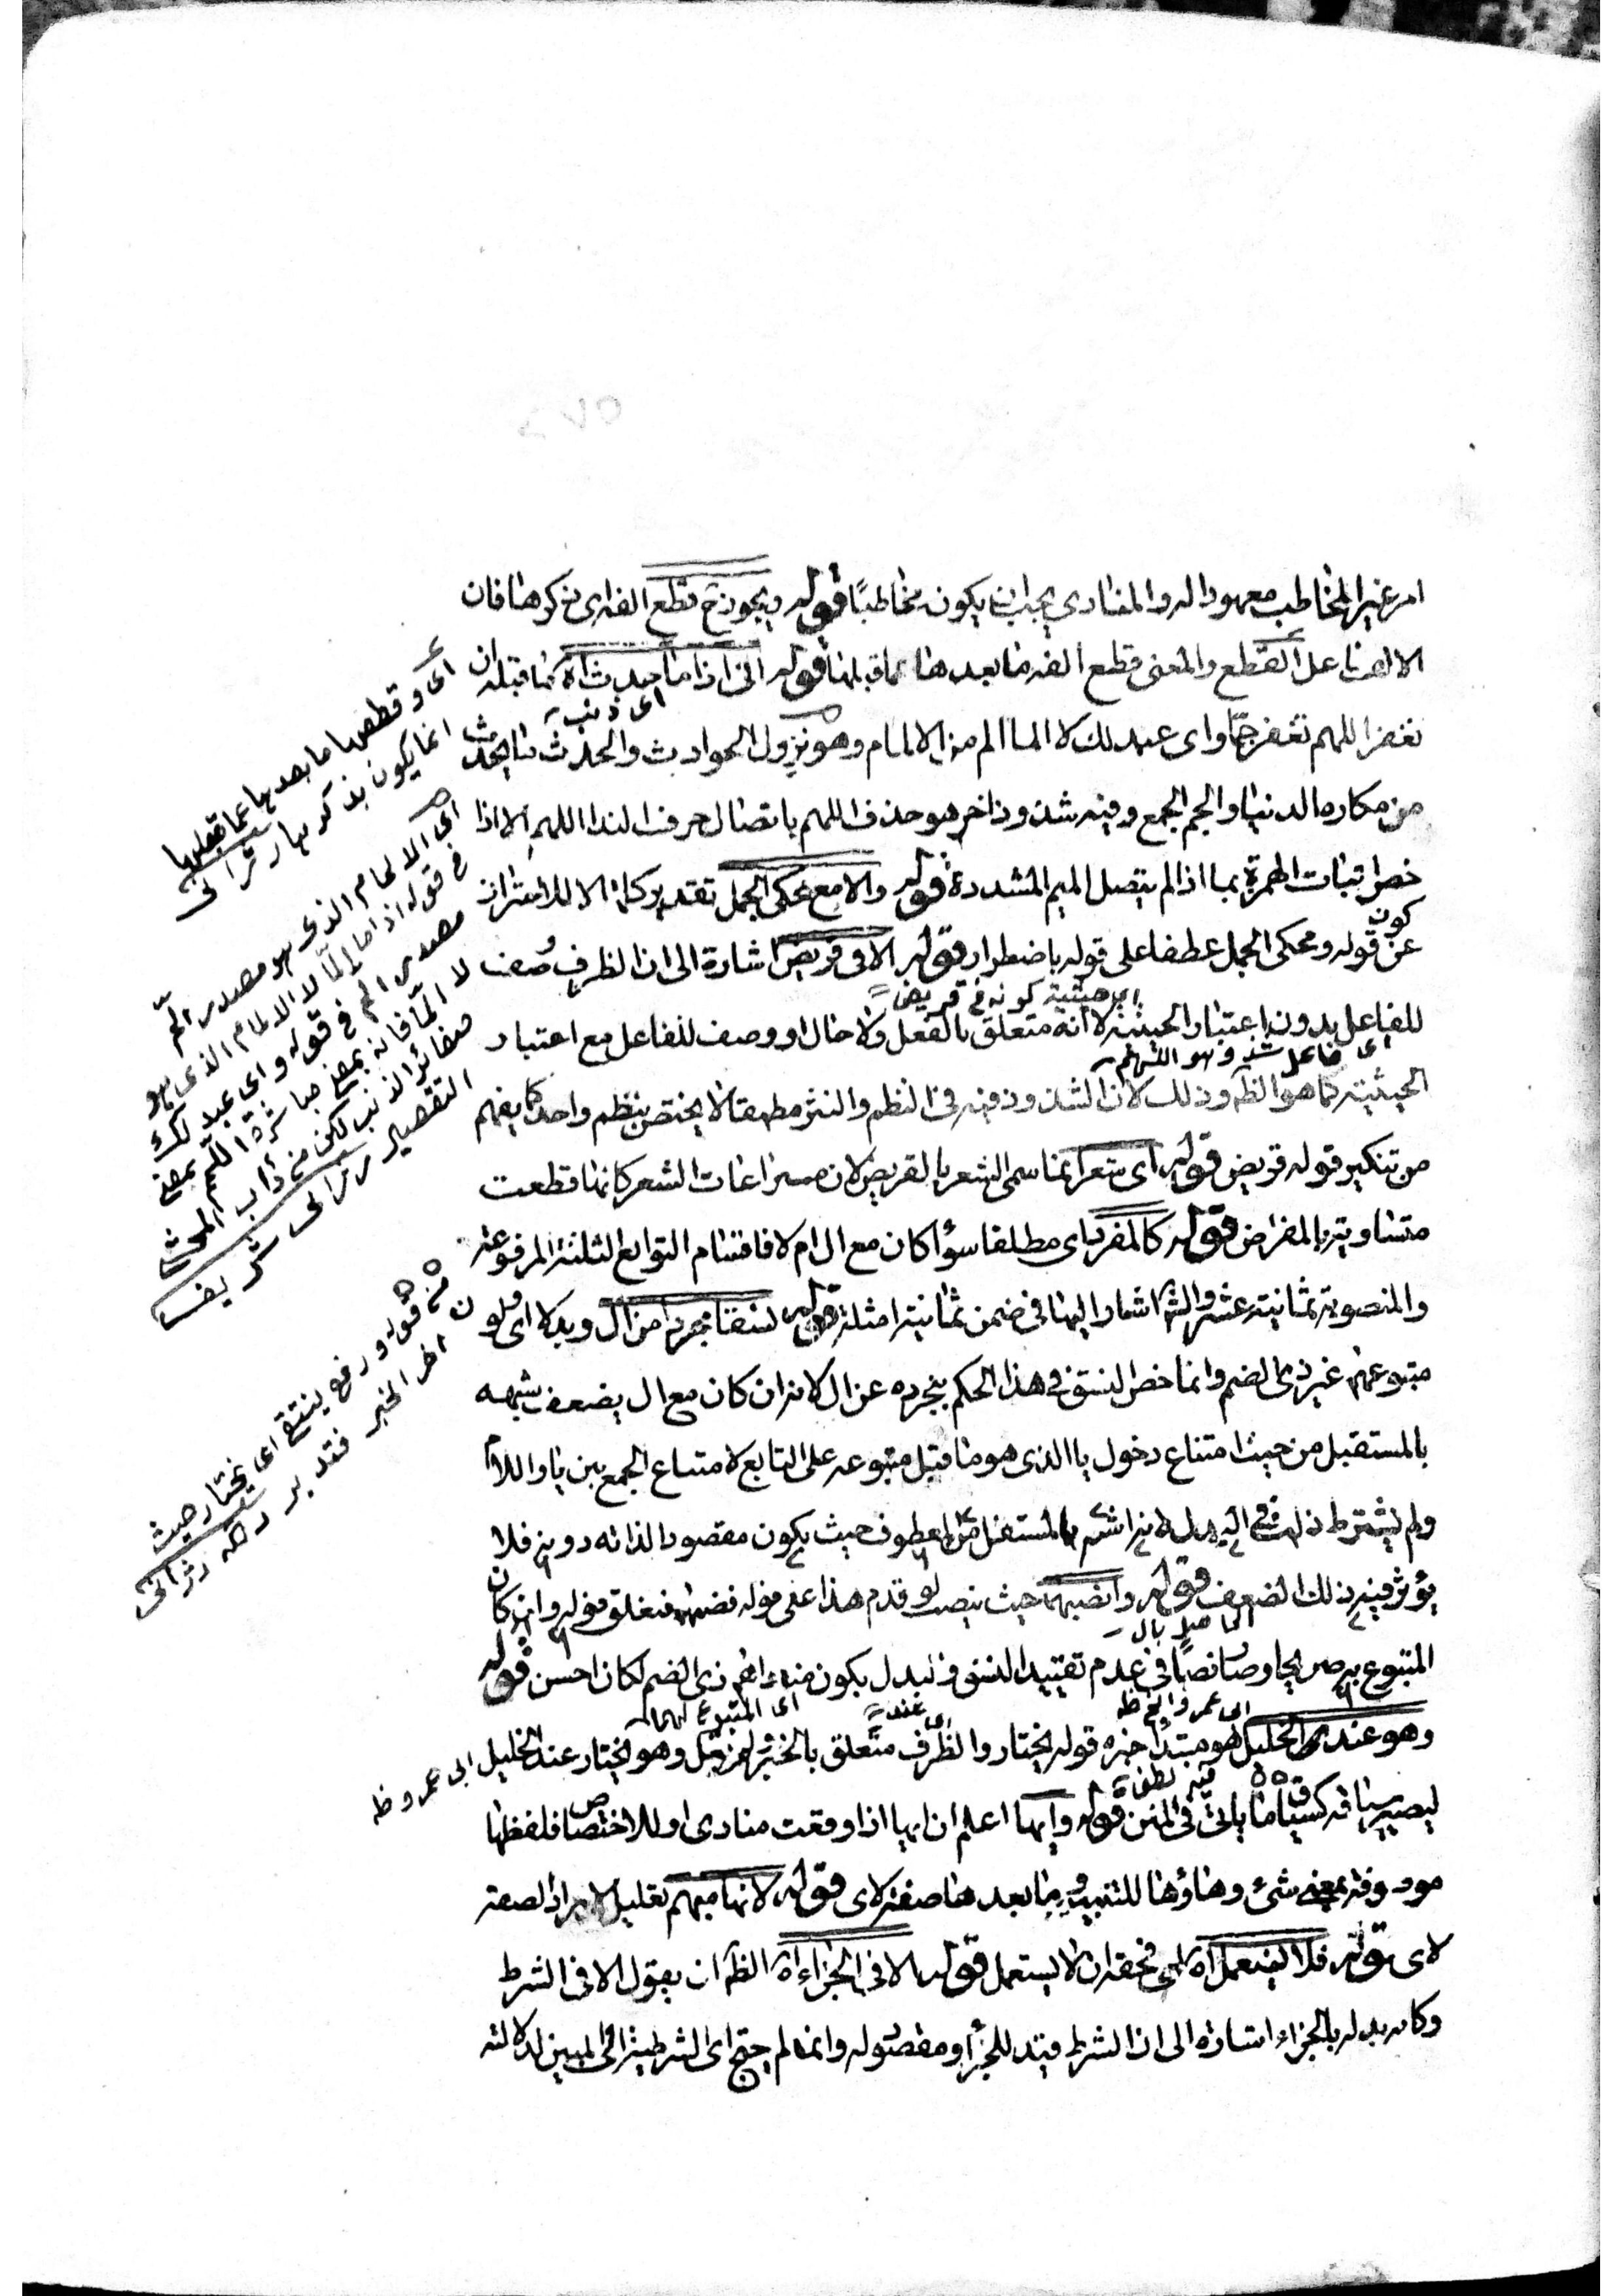 امر غير المخاطب معهودا له والمنادى يجب ان يكون مخاطبًا قوله ويجوز ح قطع الفه اى ح كرهنا فان
الالف نا على القطع والمعنى قطع الفه ما بعدها عما قبلها قوله انى اذا ما حدث اه كما قبله ان
تغفر اللهم تغفر جمّا واى عبد لك لا الما الم من الالمام وهو نزول الحوادث والحدث ما يحدث
اى ذنب
من مكاره الدنيا والجم الجمع وفيه شذوذ اخر هو حذف اللهم باتصال حرف الندا اللهم الا اذا
خص اثبات الهمزة بما اذا لم يتصل الميم المشددة قوله والا مع محكى الجمل تقدير كلمة الا للاحتراز
عن كون قوله ومحكى الجمل عطفا على قوله باضطرار قوله الا فى قريض اشارة الى ان الظرف وصف
اى حيثية كونه فى قريض
للفاعل بدون اعتبار الحيثية لا انه متعلق بالفعل ولا حال او وصف للفاعل مع اعتبار
اى فاعل شذ وهو اللهم
الحيثية كما هو الظ وذلك لان الشذوذ فيه فى النظم والنثر مطلقا لا يختص بنظم واحد كما يفهم
من تنكير قوله قريض قوله اى شعر انما سمى الشعر بالقريض لان مسراعات الشعر كانها قطعت
متساوية بالمقراض قوله كالمفرد اى مطلقا سواء كان مع ال ام لا فاقسام التوابع الثلثة المرفوعة
والمنصوبة ثمانية عشر والش اشار اليها فى ضمن ثمانية امثلة قوله نسقا مجردا من ال وبدلا اى ولو
متبوعهما غير ذى الضم وانما خص النسق فى هذا الحكم بتجرده عن ال لانه ان كان مع ال يضعف شبهه
بالمستقبل من حيث امتناع دخول يا الذى هو ما قبل متبوعه على التابع لامتناع الجمع بين يا واللام
ولم يشترط ذلك فى البدل لانه اشبه بالمستقل من المعطوف حيث يكون مقصودا لذاته دونه فلا
يؤثر فيه ذلك الضعف قوله وانصبهما حيث ينصب لو قدم هذا على قوله فضمهما فتعلق قوله وان كان
المتبوع به صريحا وصا نصا فى عدم تقييد النسق والبدل بكون متبوعهما ذى الضم لكان احسن قوله
الحاصل بال
وهو عند الخليل هو مبتدأ خبره قوله يختار والظرف متعلق بالخبر ولم يقل وهو يختار عند الخليل
ابى عمرو ظ
اى المتبوع لهما
ليصير سياقه كسياق ما يأتى فى المتن قوله وايها اعلم ان ايها اذا وقعت منادى او للاختصاص فلفظها
موصوفة بمعنى شئ وهاؤها للتنبيه وما بعدها صفة لاى قوله لانها مبهم تعليل لايراد الصفة
لاى قوله فلا يستعمل اه اى فحقه ان لا يستعمل قوله الا فى الجزاء اه الظ ان يقول الا فى الشرط
وكانه بدله بالجزاء اشارة الى ان الشرط قيد للجزاء ومقصوله وانما لم يحتج اى الشرطية الى لمبين لدلالته
اى وقطعها ما بعدها عما قبلها
انما يكون بذكرها رزانى
اى الالمام الذى هو مصدر المّ
فى قوله اذا ما المّا لا الالمام الذى هو
مصدر الم فى قوله واى عبد لك
لا المّا فانه بمعنى مباشرة اللمم بمعنى
صغائر الذنب لكن من داب المحشى
التقصير رزانى شريف
من قوله ورفع ينتقى اى يختار حيث
اخر الخبر فتدبر رزانى